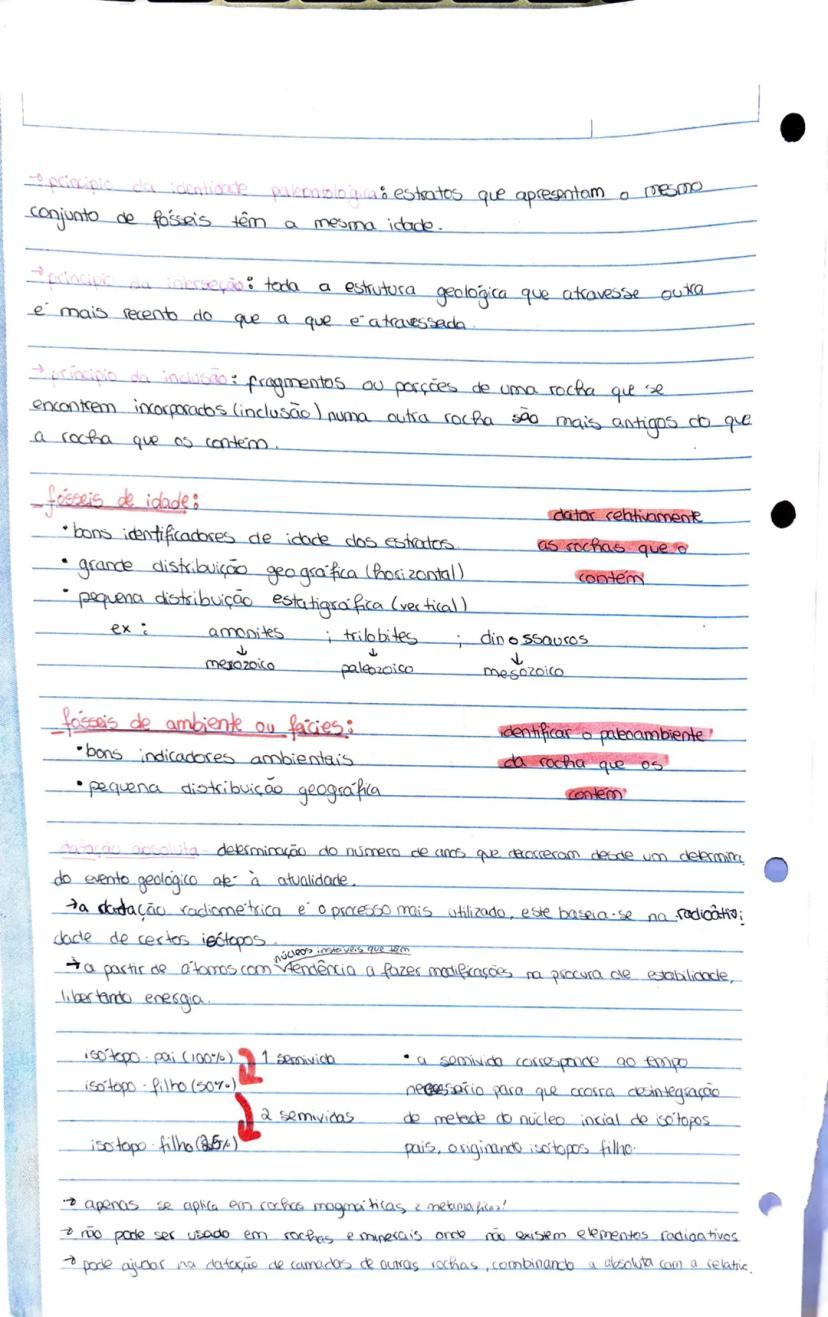 → princípio da identidade paleontológica: estratos que apresentam o mesmo
conjunto de fósseis têm a mesma idade.
→ princípio da interseção: toda a estrutura geológica que atravesse outra
é mais recente do que a que é atravessada.
→ princípio da inclusão: fragmentos ou porções de uma rocha que se
encontrem incorporados (inclusão) numa outra rocha são mais antigos do que
a rocha que os contém.
fósseis de idade:
datar relativamente
• bons identificadores de idade dos estratos
as rochas que o
• grande distribuição geográfica (horizontal)
contém
• pequena distribuição estatigráfica (vertical)
ex: amonites ; trilobites ; dinossauros
↓ ↓ ↓
mesozoico paleozoico mesozoico
fósseis de ambiente ou fácies:
identificar o paleoambiente
• bons indicadores ambientais
da rocha que os
• pequena distribuição geográfica
contém
datação absoluta - determinação do número de anos que decorreram desde um determina
do evento geológico até à atualidade.
→ a datação radiométrica é o processo mais utilizado, este baseia-se na radioativi
dade de certos isótopos.
núcleos instáveis que têm
→ a partir de átomos com tendência a fazer modificações na procura de estabilidade,
libertando energia.
isótopo-pai (100%) 1 semivida
isótopo-filho (50%)
2 semividas
isótopo-filho (25%)
• a semivida corresponde ao tempo
necessário para que ocorra desintegração
de metade do núcleo inicial de isótopos
pais, originando isótopos filho.
→ apenas se aplica em rochas magmáticas e metamórficas!
→ não pode ser usado em rochas e minerais onde não existem elementos radioativos
→ pode ajudar na datação de camadas de outras rochas, combinando a absoluta com a relativ.